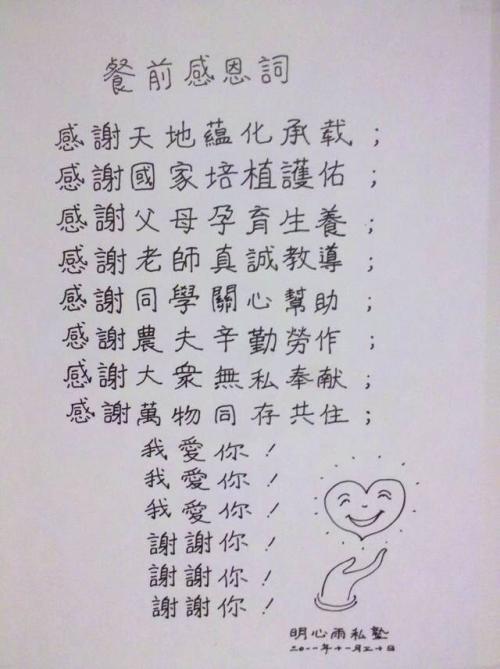 餐前感恩詞
感謝天地蘊化承载；
感謝國家培植護佑；
感謝父母孕育生養；
感謝老師真誠教導；
感謝同學關心幫助；
感謝農夫辛勤勞作；
感謝大衆無私奉献；
感謝萬物同存共住；
我愛你！
我愛你！
我愛你！
謝謝你！
謝謝你！
謝謝你！
明心雨私塾
二〇一一年十一月三十日